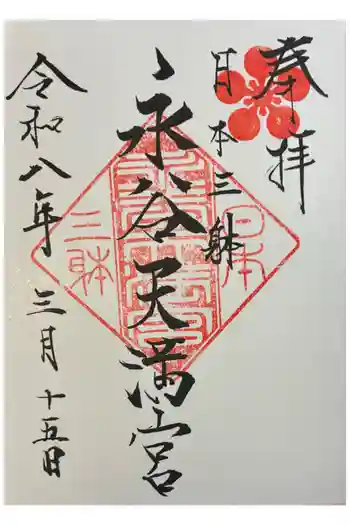 奉拝
日本三躰
永谷天満宮
令和八年 三月 十五日
日本
三躰